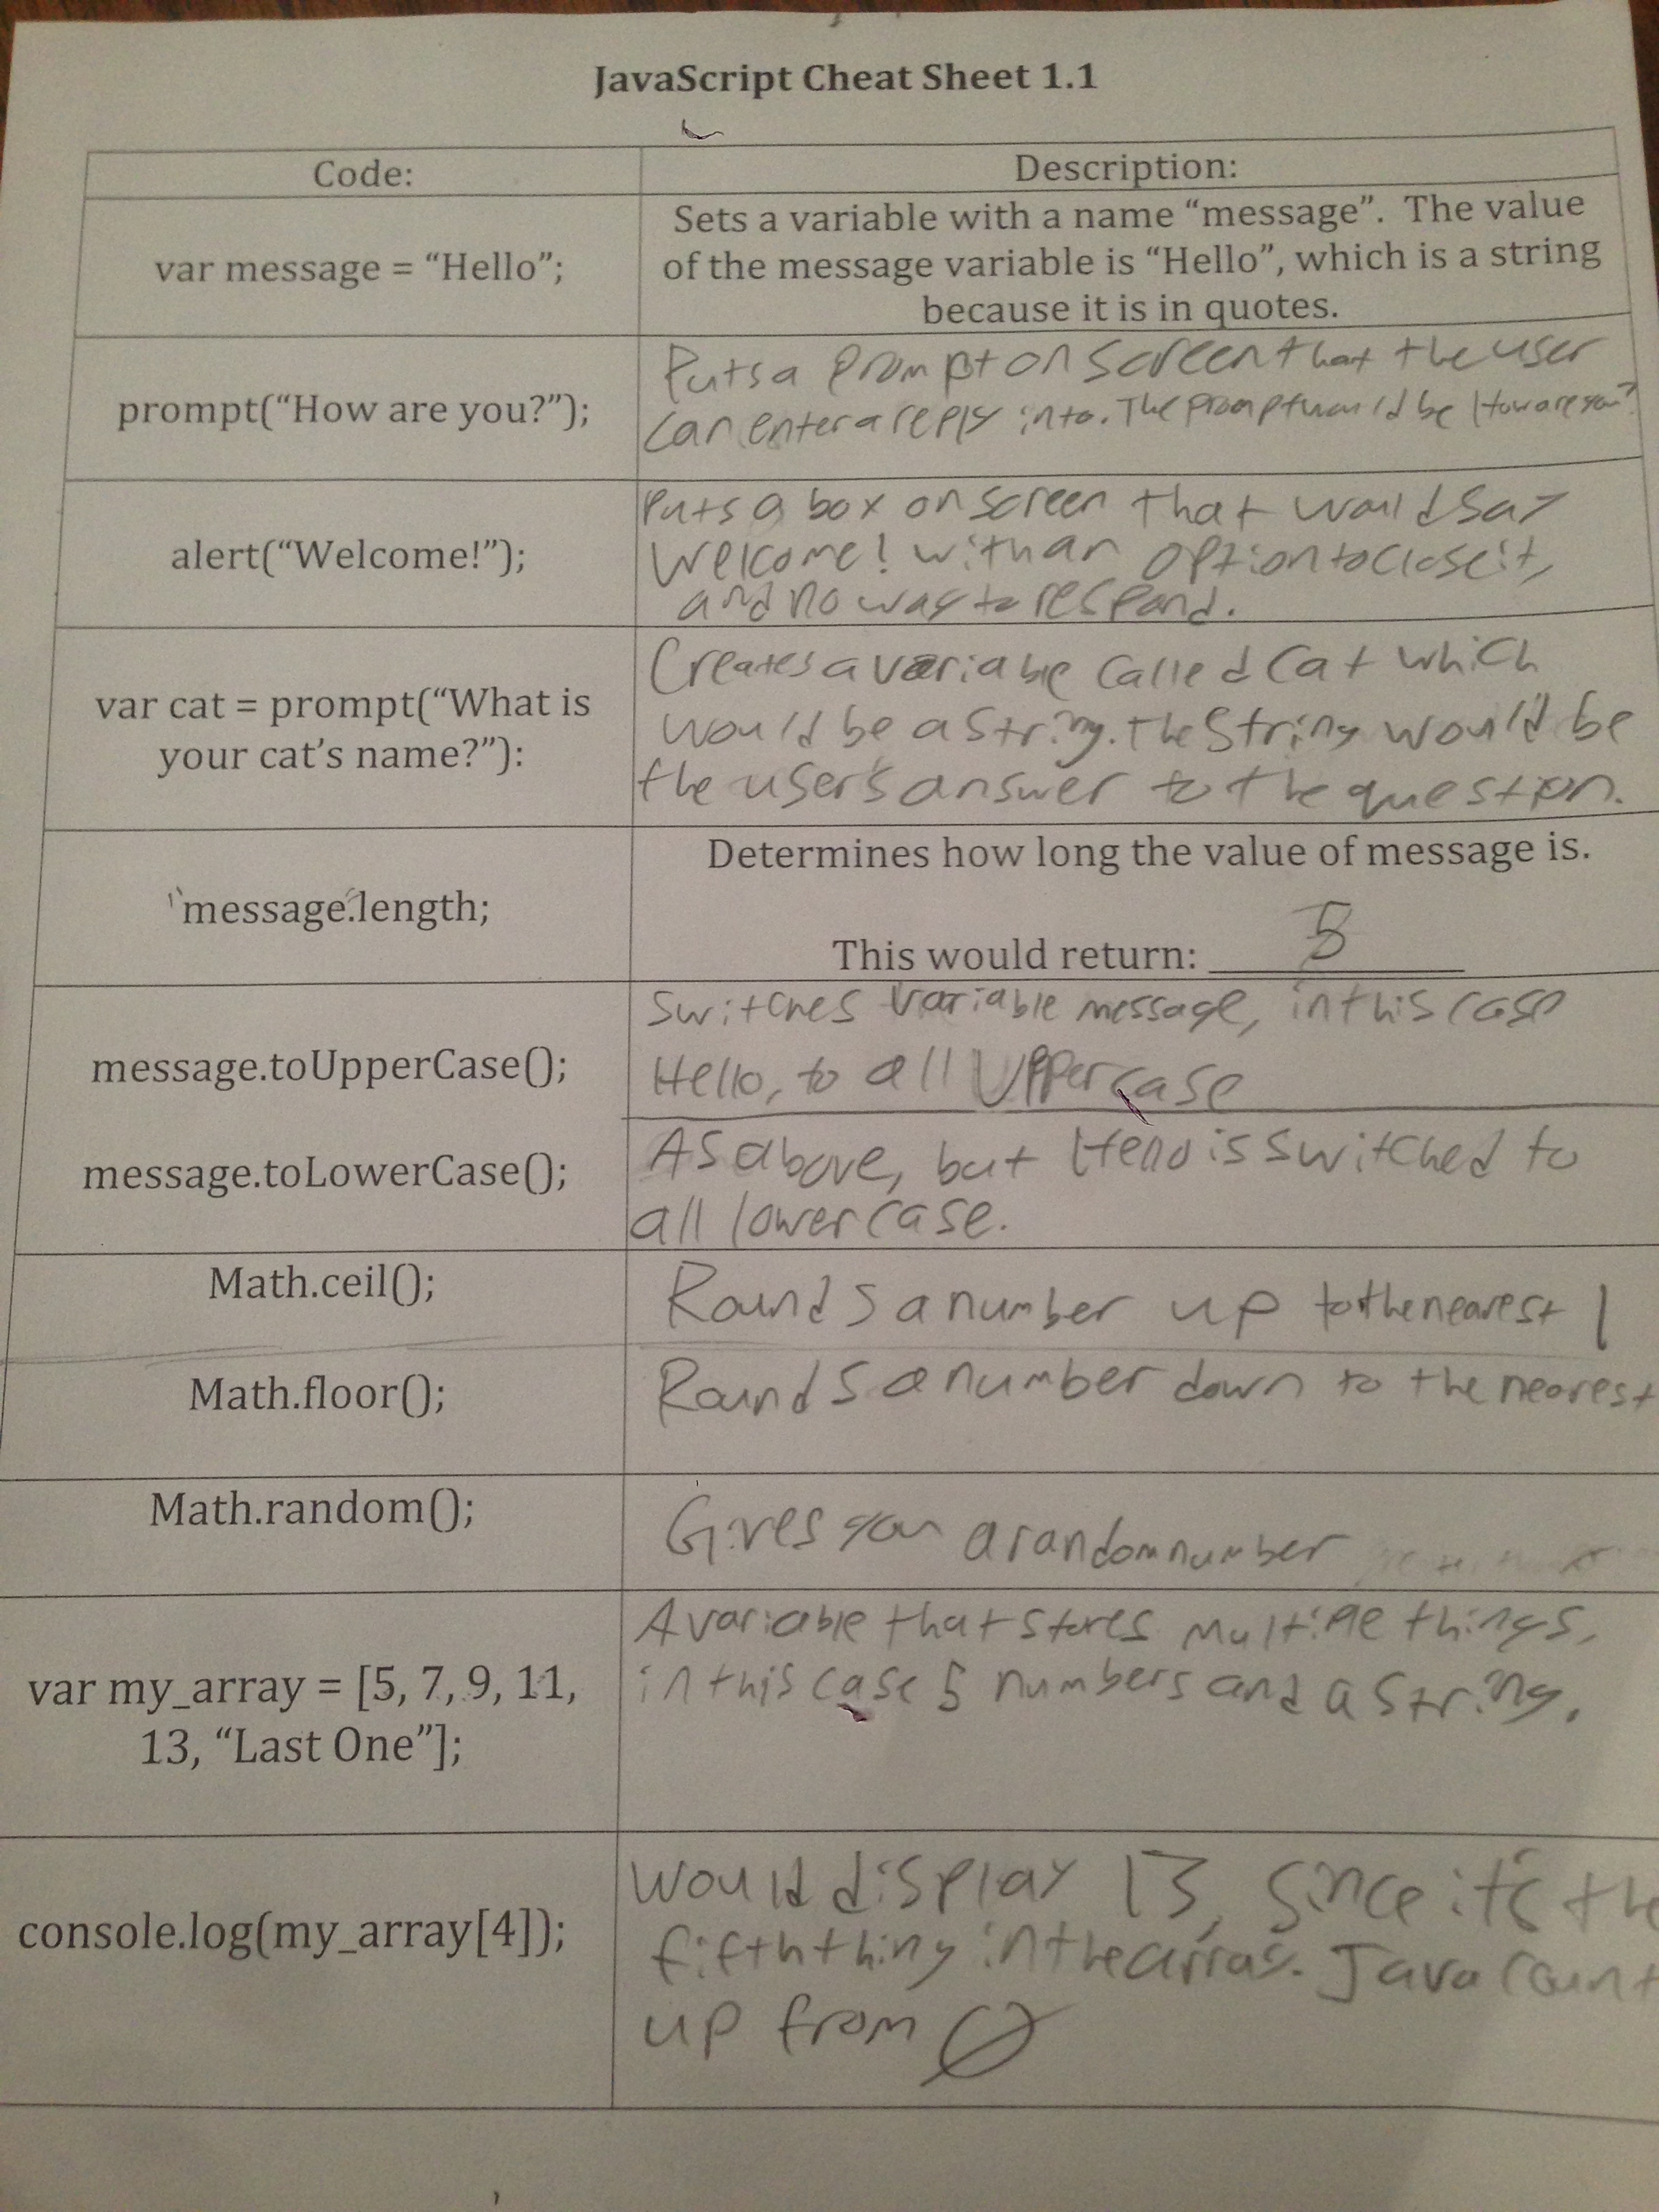 JavaScript Cheat Sheet 1.1
Code:
Description:
var message = “Hello”;
Sets a variable with a name “message”. The value
of the message variable is “Hello”, which is a string
because it is in quotes.
prompt(“How are you?”);
Puts a prompt on screen that the user
can enter a reply into. The prompt would be How are you?
alert(“Welcome!”);
Puts a box on screen that would say
Welcome! with an option to close it,
and no way to respond.
var cat = prompt(“What is
your cat’s name?”):
Creates a variable called cat which
would be a string. The string would be
the user's answer to the question.
message.length;
Determines how long the value of message is.
This would return: 5
message.toUpperCase();
Switches variable message, in this case
Hello, to all Uppercase
message.toLowerCase();
As above, but Hello is switched to
all lower case.
Math.ceil();
Rounds a number up to the nearest 1
Math.floor();
Rounds a number down to the nearest
Math.random();
Gives you a random number
var my_array = [5, 7, 9, 11,
13, “Last One”];
A variable that stores multiple things,
in this case 5 numbers and a string.
console.log(my_array[4]);
Would display 13, since it's the
fifth thing in the array. Java count
up from 0